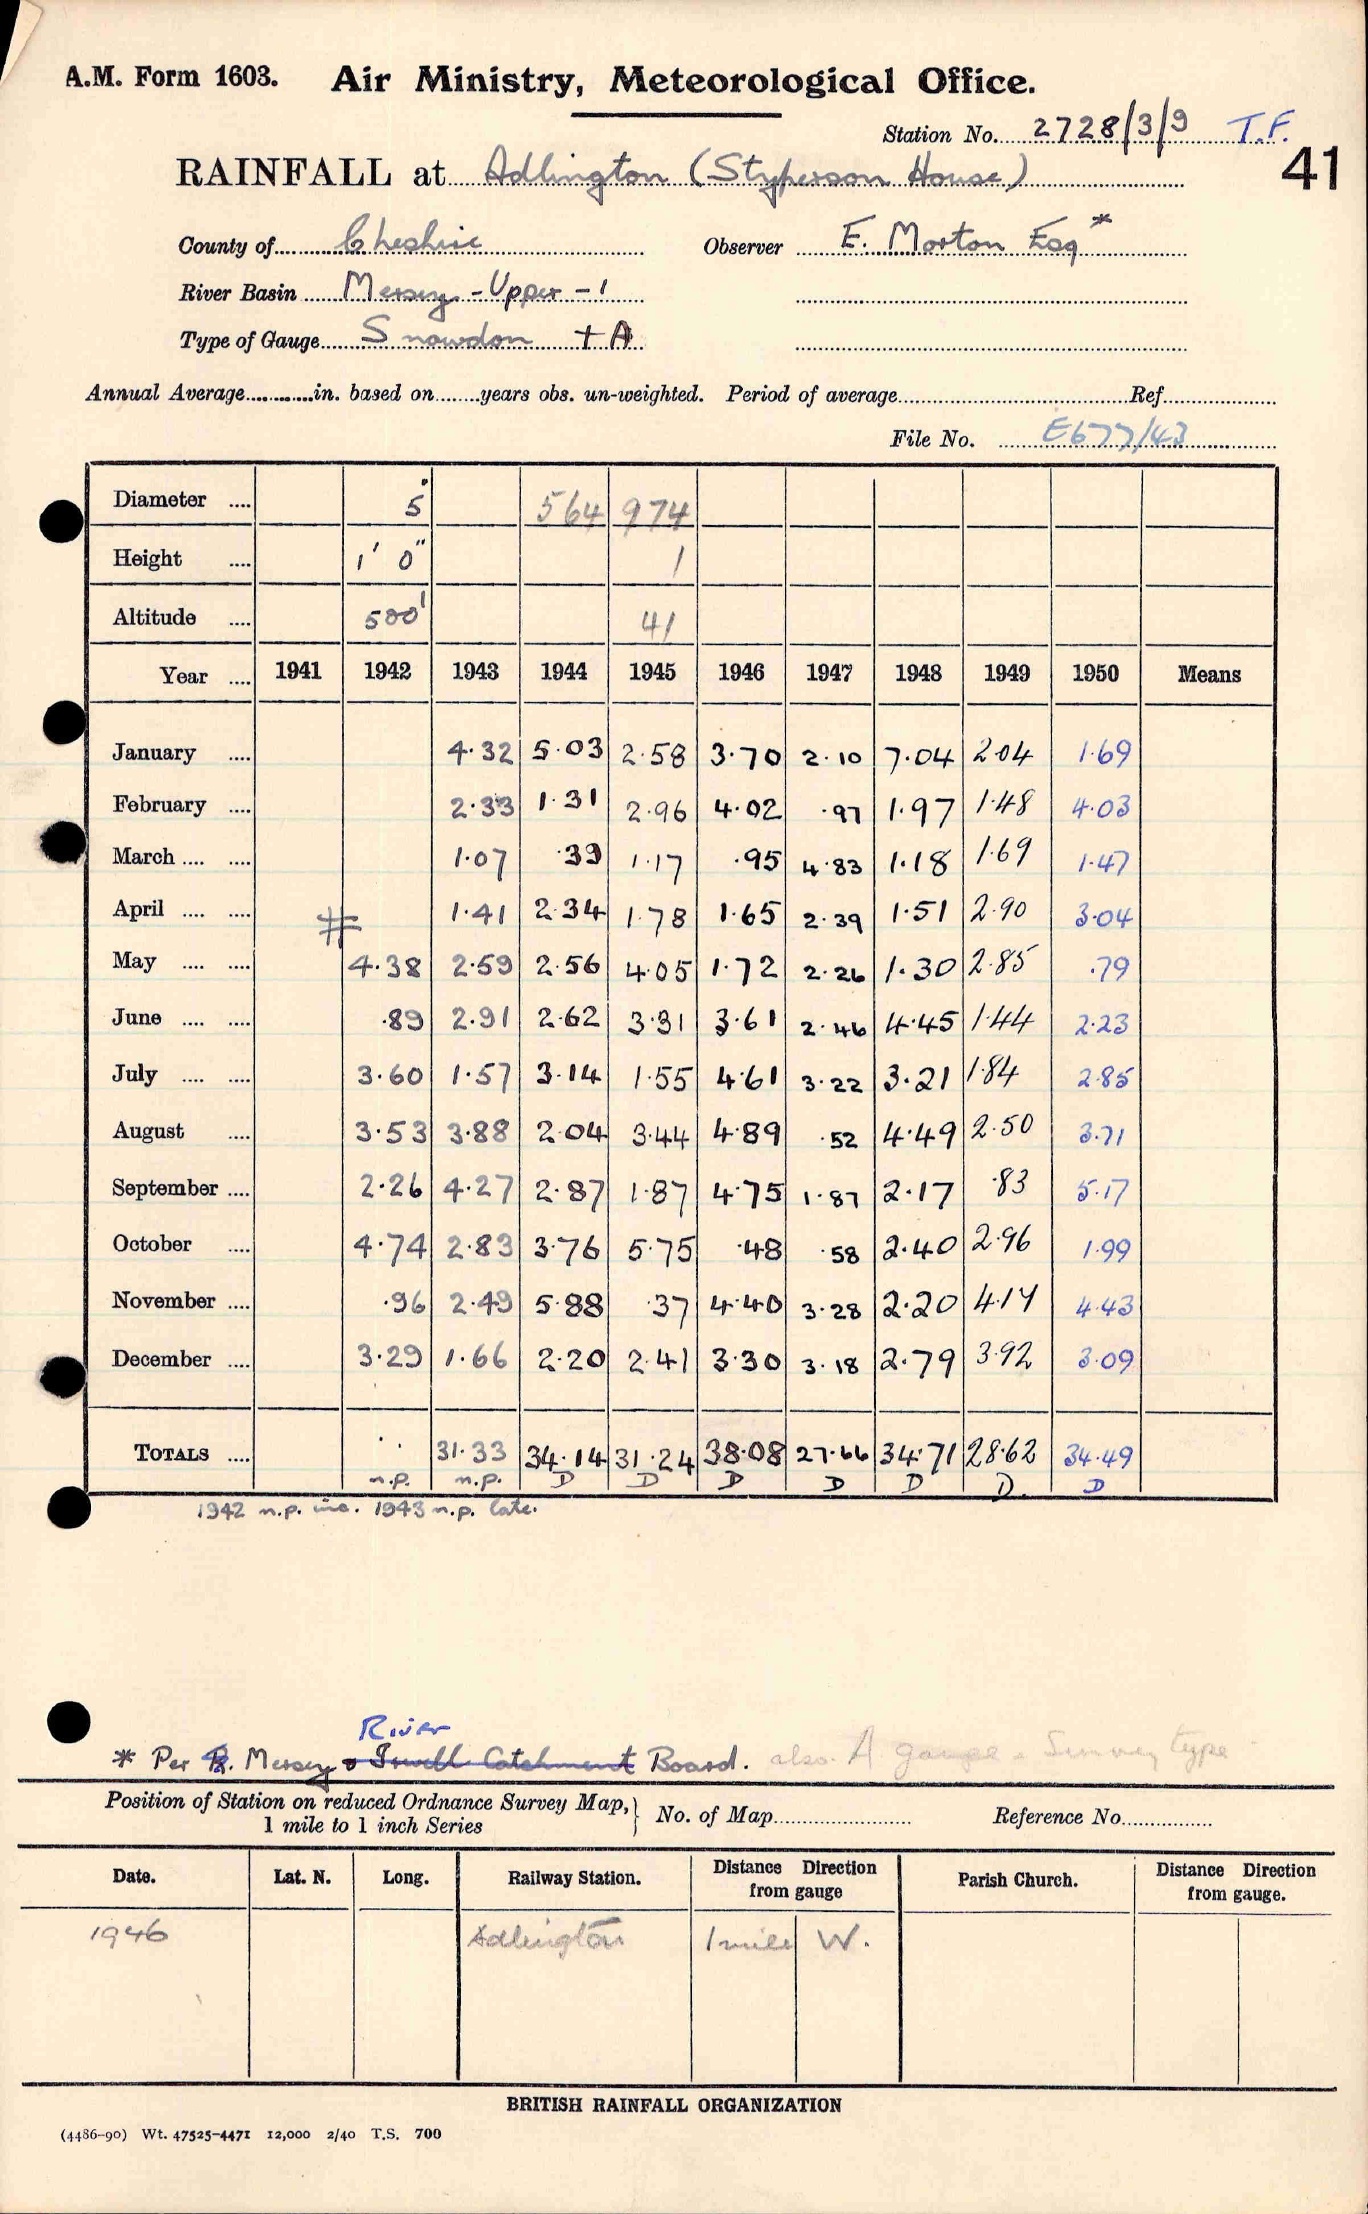 A.M. Form 1603. Air Ministry, Meteorological Office.
Station No. 2728/3/9 T.F.
41
RAINFALL at Adlington (Styperson House)
County of Cheshire Observer E. Morton Esq *
River Basin Mersey - Upper - 1
Type of Gauge Snowdon + A
Annual Average in. based on years obs. un-weighted. Period of average Ref
File No. E677/43
Diameter .... 5 564 974
Height .... 1' 0" 1
Altitude .... 500' 41
Year .... 1941 1942 1943 1944 1945 1946 1947 1948 1949 1950 Means
January .... 4.32 5.03 2.58 3.70 2.10 7.04 2.04 1.69
February .... 2.33 1.31 2.96 4.02 .97 1.97 1.48 4.03
March .... .... 1.07 .39 1.17 .95 4.83 1.18 1.69 1.47
April .... .... # 1.41 2.34 1.78 1.65 2.39 1.51 2.90 3.04
May .... .... 4.38 2.59 2.56 4.05 1.72 2.26 1.30 2.85 .79
June .... .... .89 2.91 2.62 3.31 3.61 2.46 4.45 1.44 2.23
July .... .... 3.60 1.57 3.14 1.55 4.61 3.22 3.21 1.84 2.85
August .... 3.53 3.88 2.04 3.44 4.89 .52 4.49 2.50 3.71
September .... 2.26 4.27 2.87 1.87 4.75 1.87 2.17 .83 5.17
October .... 4.74 2.83 3.76 5.75 .48 .58 2.40 2.96 1.99
November .... .96 2.49 5.88 .37 4.40 3.28 2.20 4.17 4.43
December .... 3.29 1.66 2.20 2.41 3.30 3.18 2.79 3.92 3.09
TOTALS .... .. 31.33 34.14 31.24 38.08 27.66 34.71 28.62 34.49
n.p. n.p. D D D D D D. D
1942 n.p. inc. 1943 n.p. late.
River
* Per R. Mersey & Irwell Catchment Board. also A gauge - Survey type
Position of Station on reduced Ordnance Survey Map, 1 mile to 1 inch Series } No. of Map Reference No.
Date. Lat. N. Long. Railway Station. Distance Direction from gauge Parish Church. Distance Direction from gauge.
1946 Adlington 1 mile W.
BRITISH RAINFALL ORGANIZATION
(4486-90) Wt. 47525-4471 12,000 2/40 T.S. 700